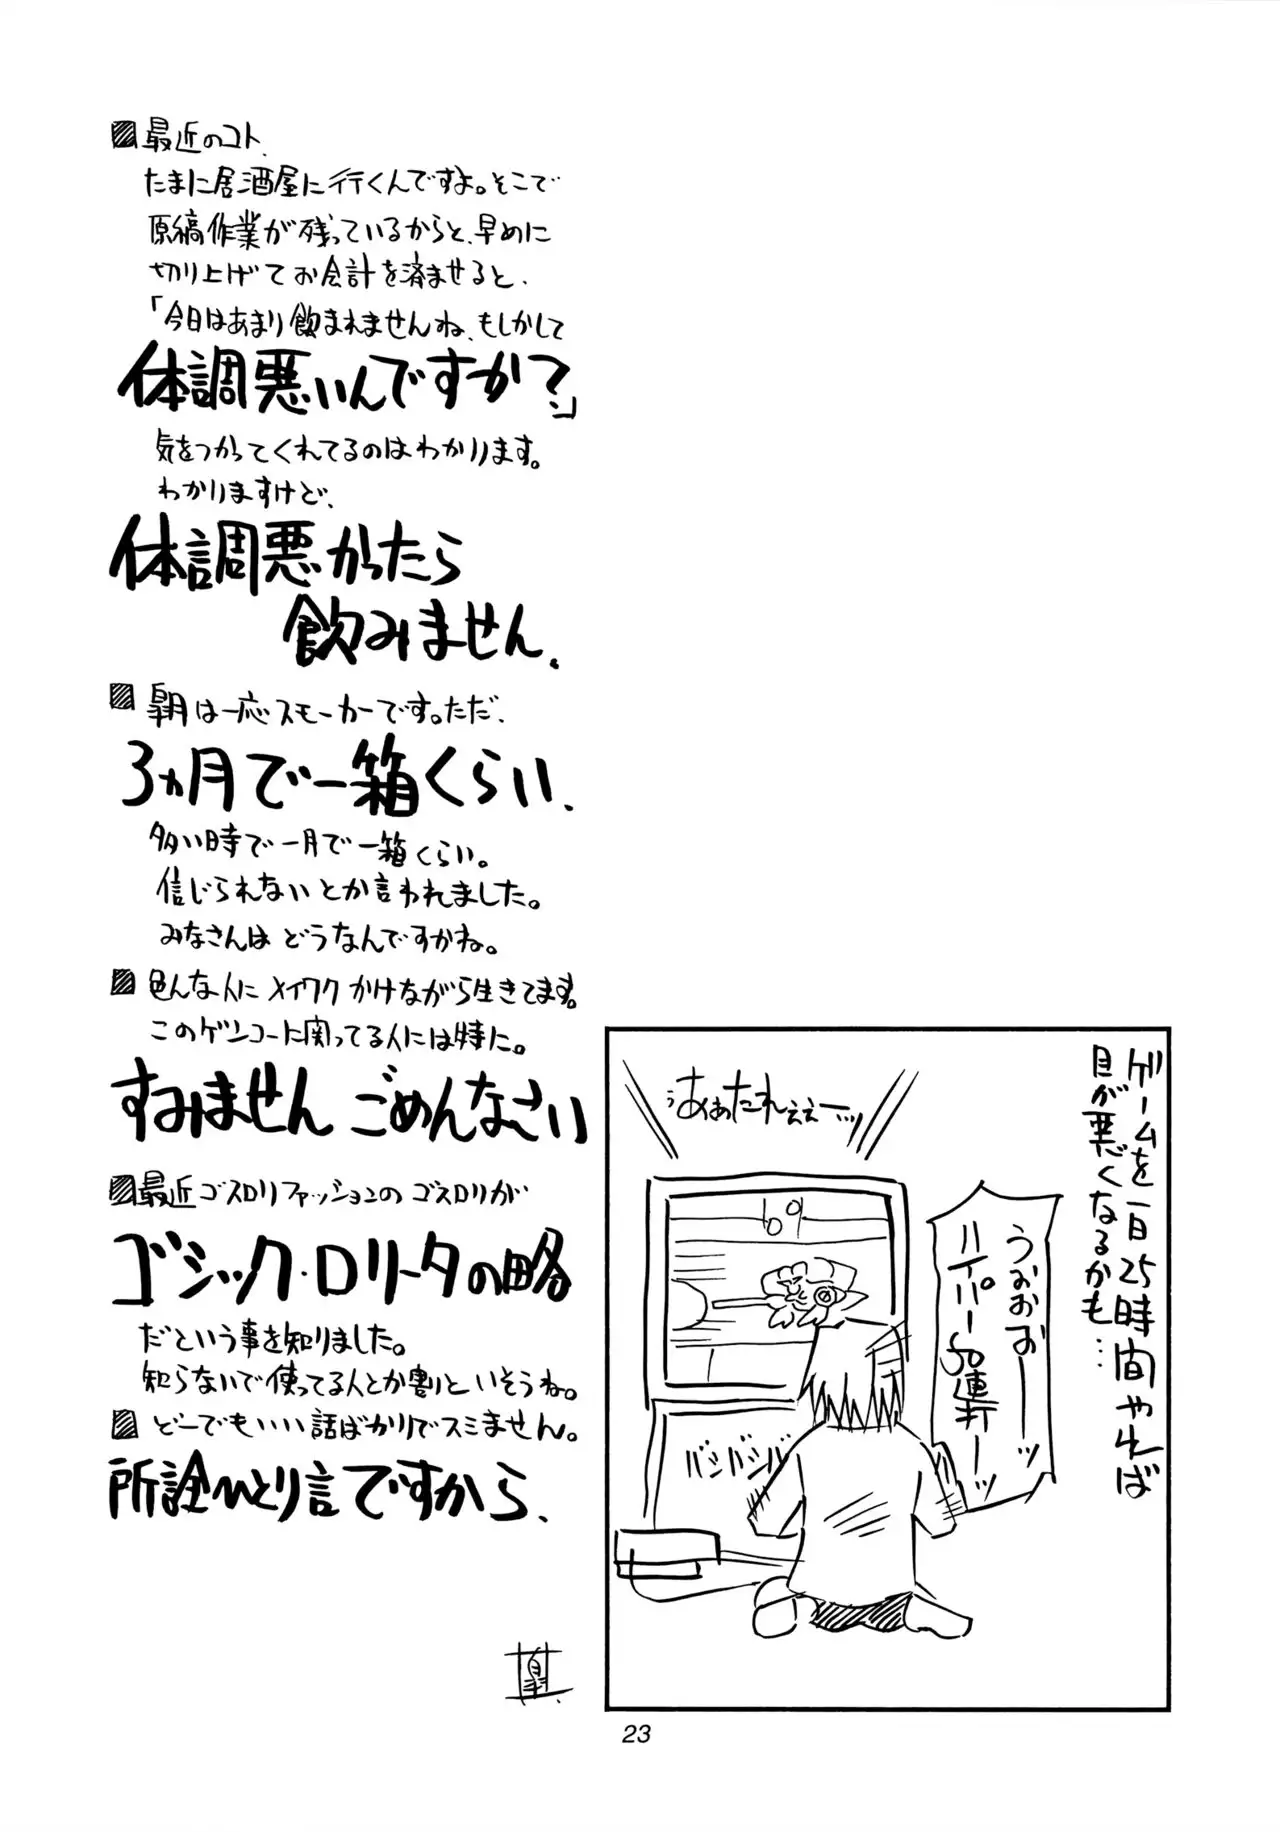 最近のコト.
たまに居酒屋に行くんですよ。そこで
原稿作業が残っているからと、早めに
切り上げてお会計を済ませると、
「今日はあまり飲まれませんね、もしかして
体調悪いんですか?」
気をつかってくれてるのはわかります。
わかりますけど、
体調悪かったら
飲みません.
は一応スモーカーです。ただ、
3ヵ月で一箱くらい.
多い時で一月で一箱くらい。
信じられないとか言われました。
みなさんはどうなんですかね。
色んな人にメイワクかけながら生きてます。
このゲンコーに関ってる人には特に。
すみません ごめんなさい
最近ゴスロリファッションのゴスロリが
ゴシック・ロリータの略
だという事を知りました。
知らないで使ってる人とか割といそうね。
どーでもいい話ばかりでスミません。
所詮ひとり言ですから、
ゲームを一日25時間やれば
目が悪くなるかも…
うおおおーーッ
ハイパー50連打ーッ
うあぁたれぇぇーッ
バシバシバシ
23